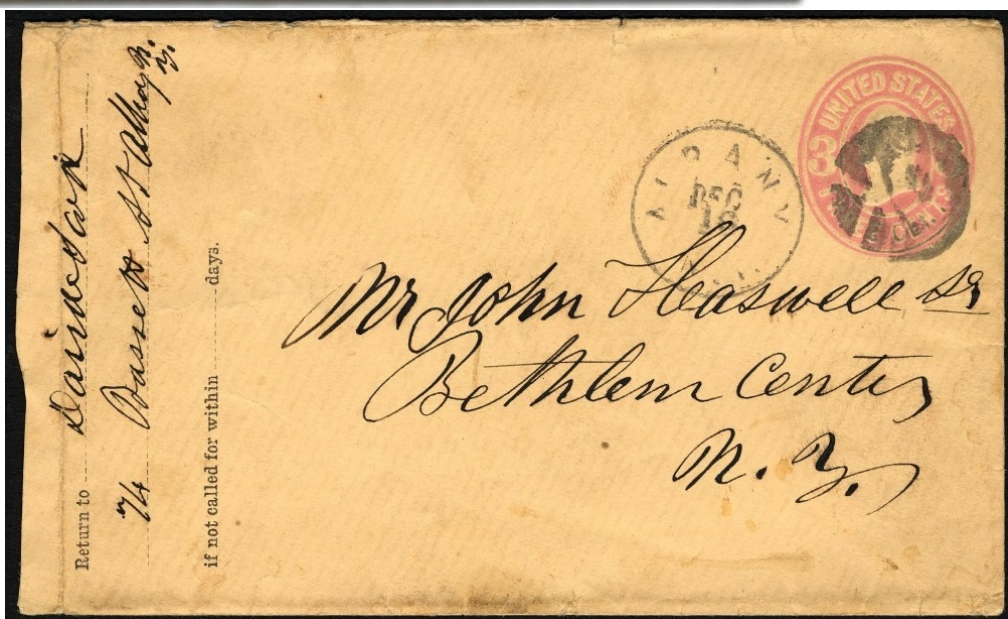 Return to
74 Bassett St Albany N.
Y.
if not called for within days.
ALBANY
DEC
16
N.Y.
UNITED STATES
3
THREE CENTS
Mr John Haswell Sr
Bethlem Center
N. Y.